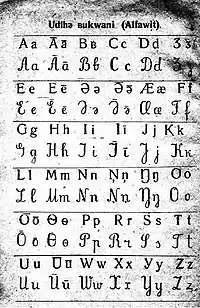 Udihə bukwani (Alfawit).
Aa Āā Bʙ Cc Dd Ʒʒ
Aa Āā Bʙ Cc Dd Ʒʒ
Ee Ēē Əə Ə̄ə̄ Ææ Ff
Ee Ēē Əə Ə̄ə̄ Ææ Ff
Gg Hh Ii Īī Jj Kk
Gg Hh Ii Īī Jj Kk
Ll Mm Nn Ņņ Ŋŋ Oo
Ll Mm Nn Ņņ Ŋŋ Oo
Ōō Θɵ Pp Rr Ss Tt
Ōō Θɵ Pp Rr Ss Tt
Uu Ūū Ww Xx Yy Zz
Uu Ūū Ww Xx Yy Zz